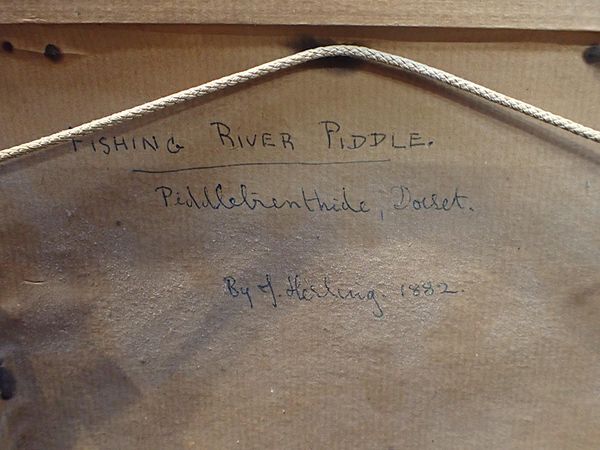 FISHING RIVER PIDDLE.
Piddlebrenthide, Dorset.
By J. Horling. 1882.